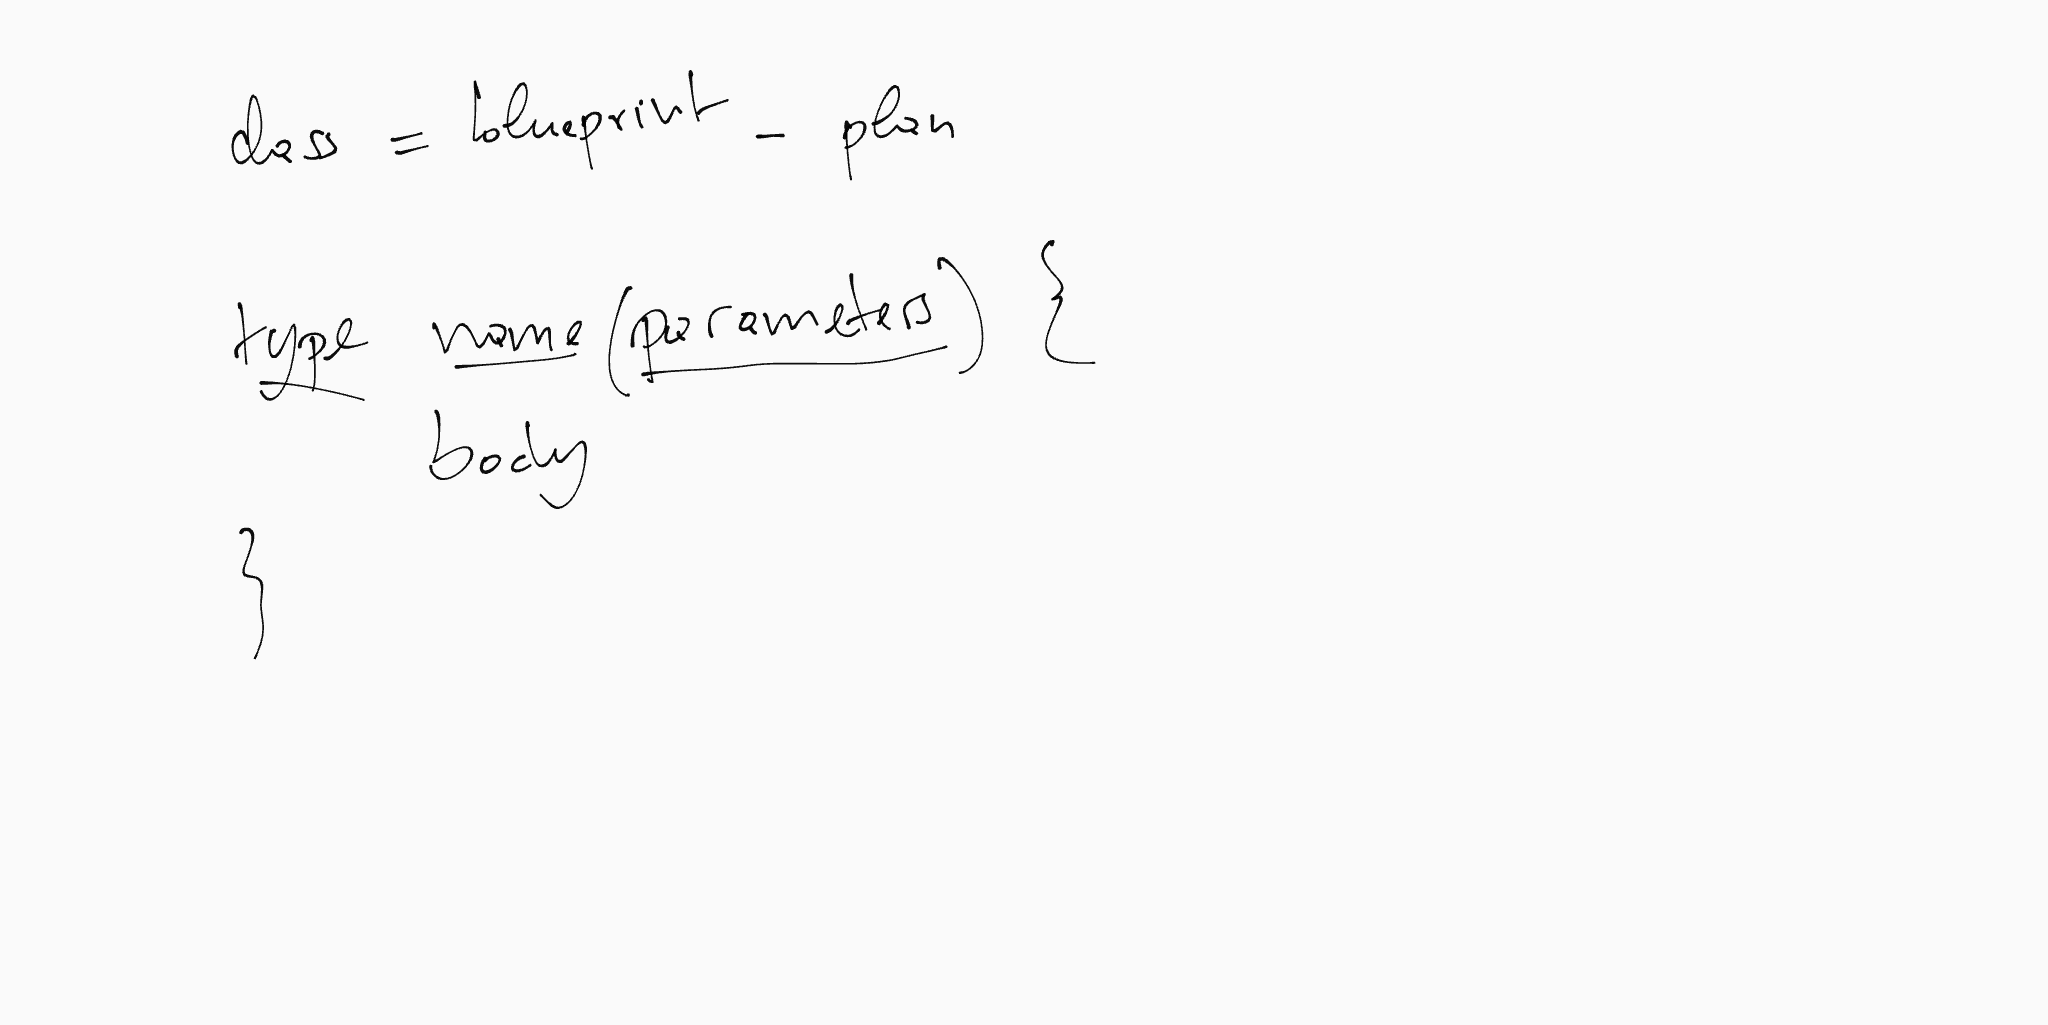 class = blueprint - plan
type name (parameters) {
body
}